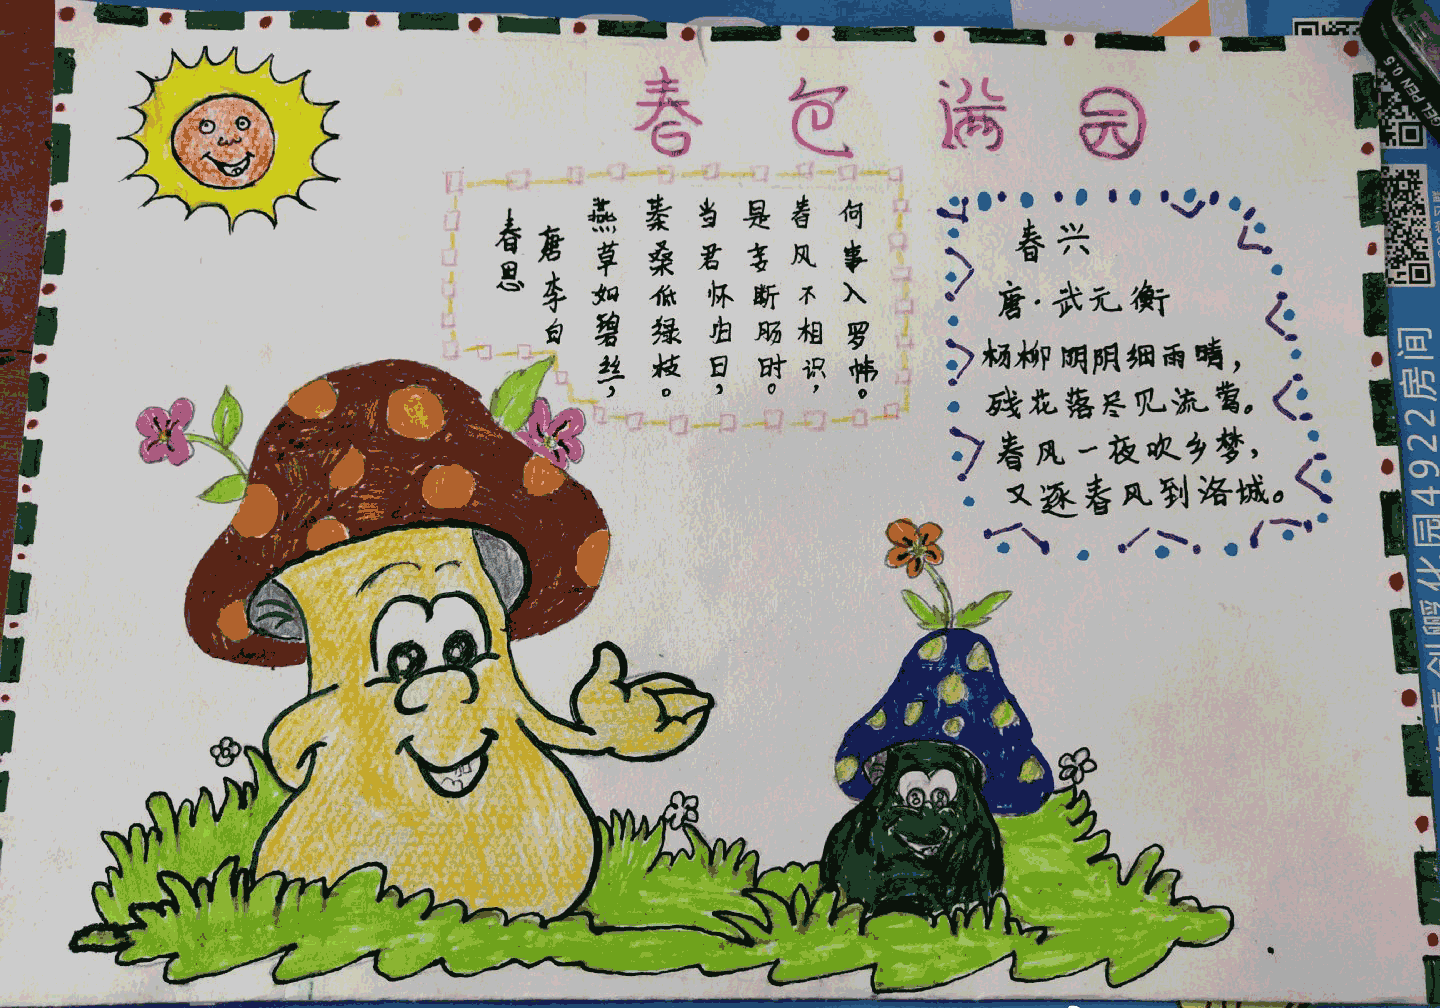 春色满园
春思
唐李白
燕草如碧丝，
秦桑低绿枝。
当君怀归日，
是妾断肠时。
春风不相识，
何事入罗帏。
春兴
唐·武元衡
杨柳阴阴细雨晴，
残花落尽见流莺。
春风一夜吹乡梦，
又逐春风到洛城。
GEL PEN 0.5
创孵化园4922房间